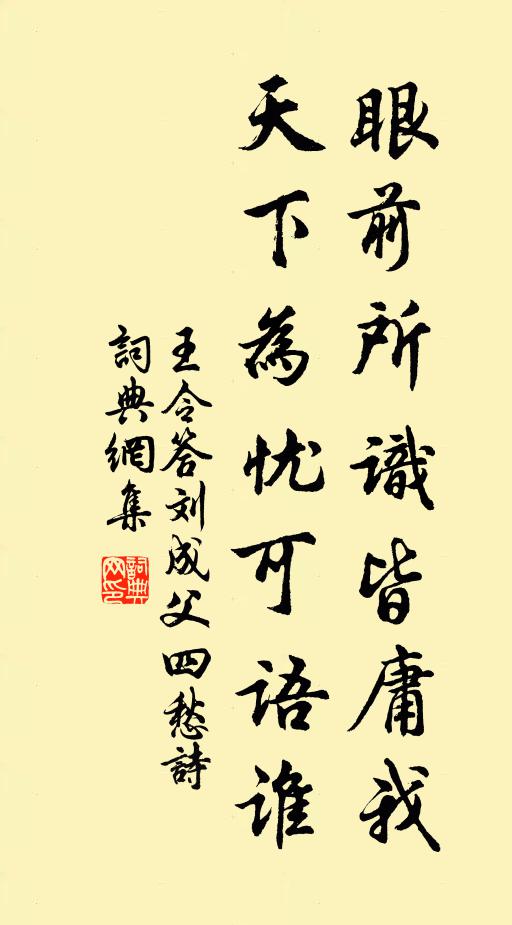 眼前所識皆庸我
天下為忧可語誰
王令答刘成父四愁詩
詞典網集
詞典
网印